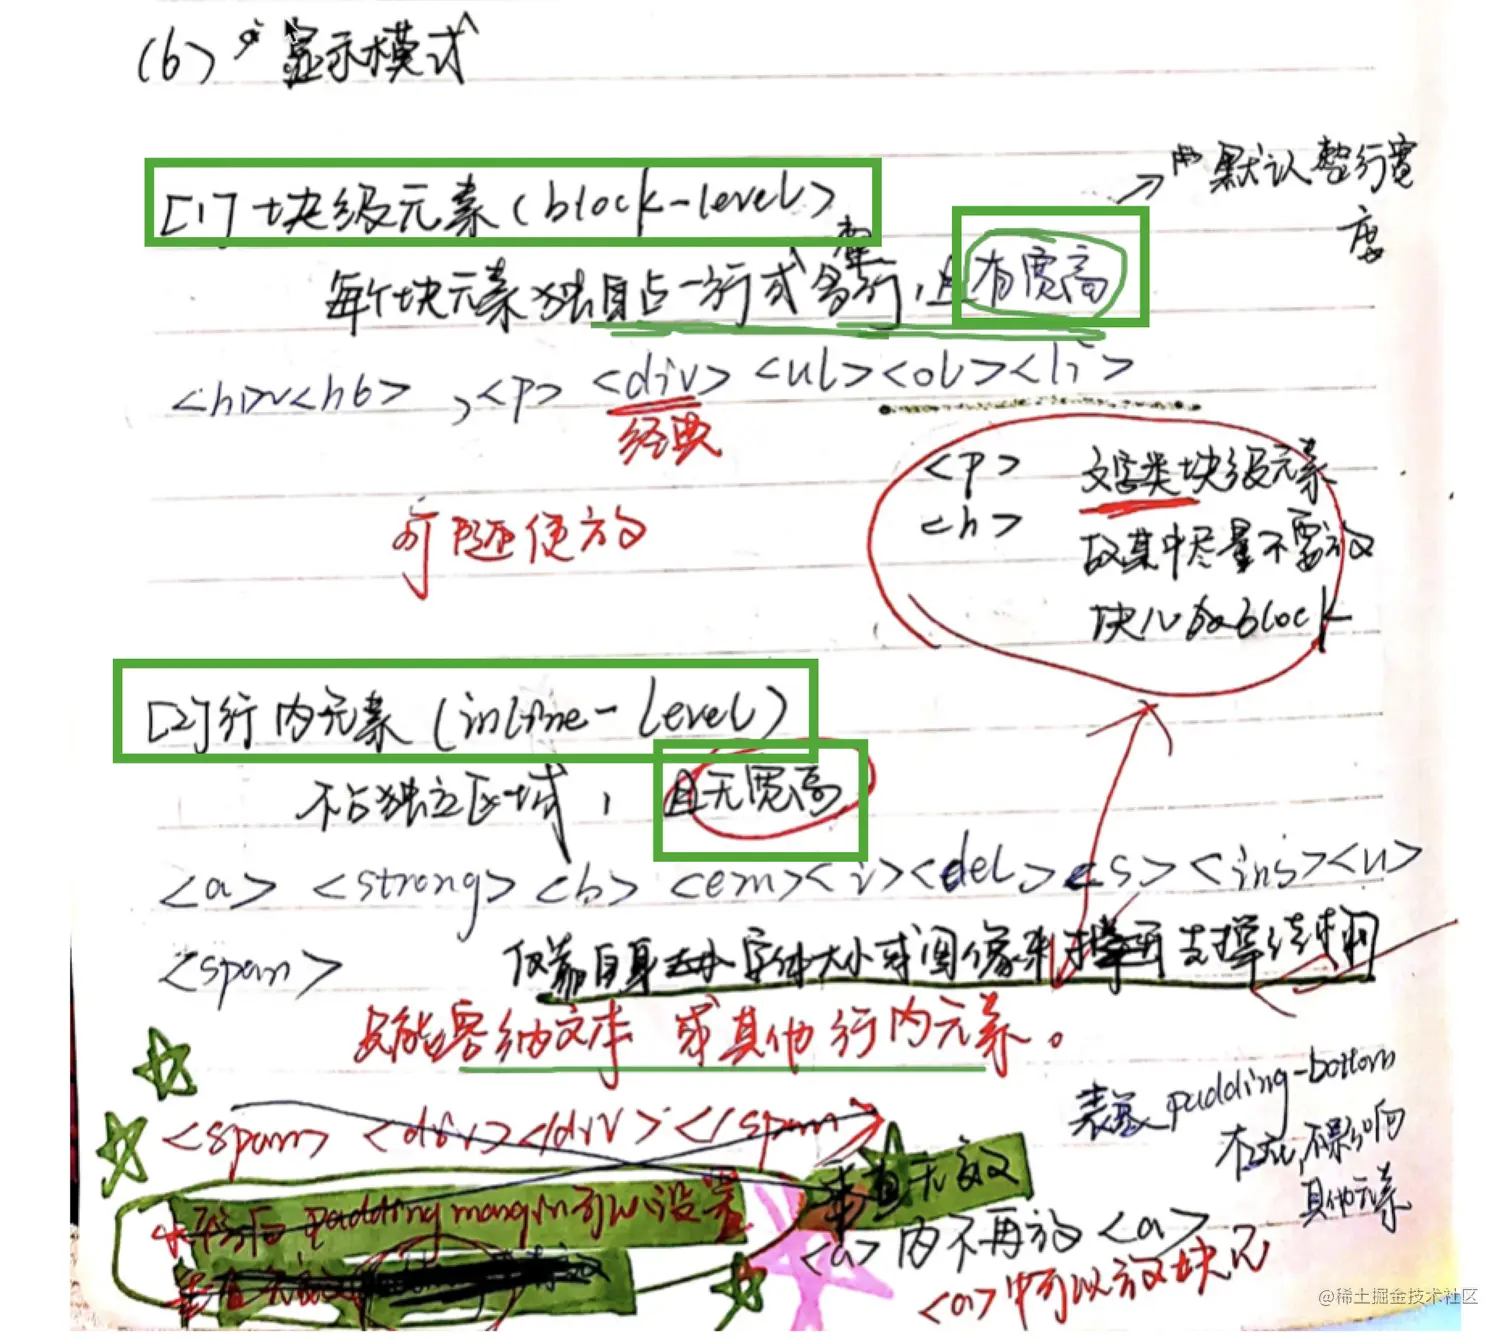 (6) 显示模式
[1] 块级元素(block-level)
默认整行宽度
每个块元素独自占一行或多行,且有宽高
<h1>~<h6> ,<p> <div> <ul><ol><li>
经典
可随便放
<p> 文字类块级元素
<h> 故其中尽量不要放
块儿 block
[2]行内元素(inline-level)
不占独立区域, 且无宽高
<a> <strong> <b> <em><i><del><s><ins><u>
<span> 仅靠自身 字体大小或图像来 支撑结构
只能容纳文本 或其他行内元素。
<span> <div></div> </span>
padding-bottom
不影响
其他元素
水平方向 padding margin可以设置
垂直无效
<a>内不再放<a>
<a>中可以放块元
@稀土掘金技术社区